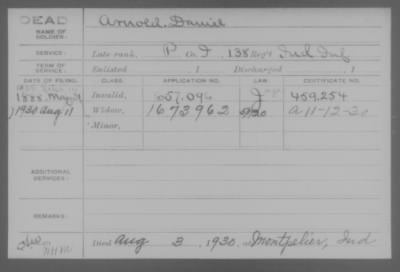 DEAD
NAME OF SOLDIER:
Arnold, Daniel
SERVICE:
Late rank, P Co. I, 138 Reg't Ind Inf
TERM OF SERVICE:
Enlisted , 1 Discharged , 1
DATE OF FILING. CLASS. APPLICATION NO. LAW. CERTIFICATE NO.
1888 May Invalid, 657,046 J 459,254
1930 Aug 11 Widow, 1673962 5/1/20 A-11-12-30
Minor,
ADDITIONAL SERVICES:
REMARKS:
Died Aug 3, 1930, at Montpelier, Ind